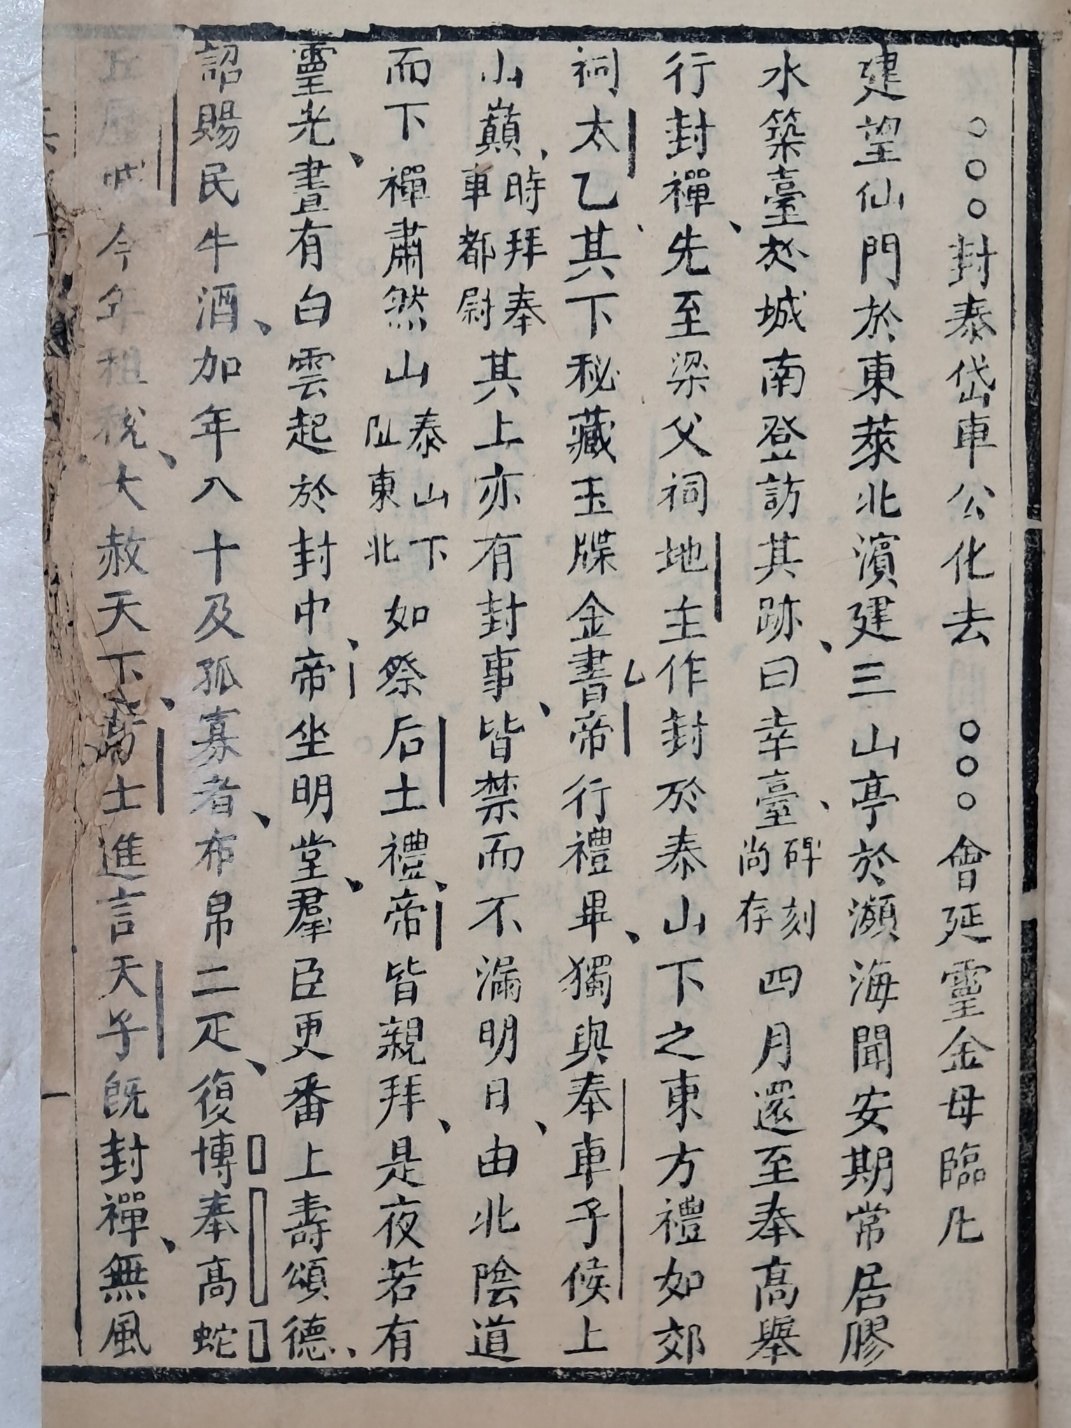 ○○○封泰岱車公化去　○○○會延靈金母臨凡
建望仙門於東萊北濱建三山亭於瀕海聞安期常居膠
水築臺於城南登訪其跡曰幸臺碑刻尚存四月還至奉高舉
行封禪先至梁父祠地主作封於泰山下之東方禮如郊
祠太乙其下秘藏玉牒金書帝行禮畢獨與奉車子候上
山巔時拜奉車都尉其上亦有封事皆禁而不漏明日由北陰道
而下禪肅然山泰山下阯東北如祭后土禮帝皆親拜是夜若有
靈光晝有白雲起於封中帝坐明堂羣臣更番上壽頌德
詔賜民牛酒加年八十及孤寡者布帛二疋復博奉高蛇
丘歷城今年租稅大赦天下方士進言天子既封禪無風